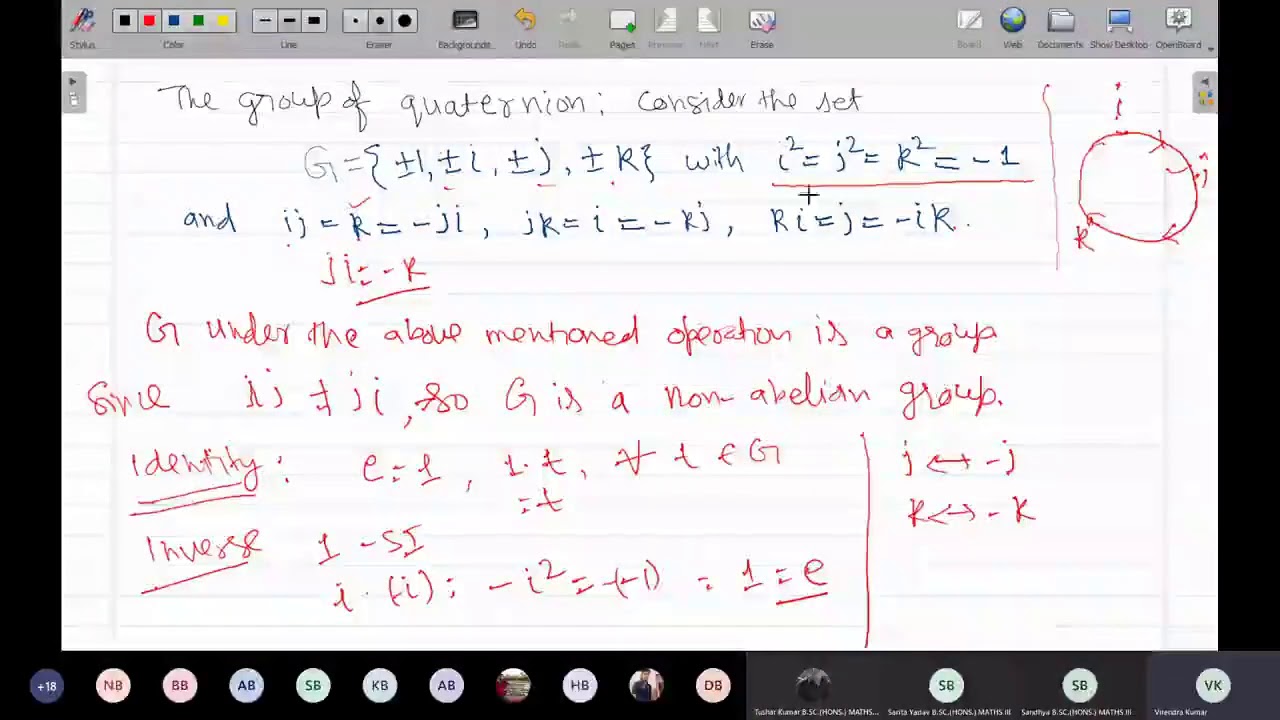 Stylus Color Line Eraser Backgrounds Undo Redo Pages Previous Next Erase Board Web Documents Show Desktop OpenBoard
The group of quaternion: Consider the set
G={±1, ±i, ±j, ±k} with i²=j²=k²=-1
and ij=k=-ji, jk=i=-kj, ki=j=-ik.
ji=-k
i
j
k
G under the above mentioned operation is a group
Since ij ≠ ji, so G is a non-abelian group.
Identity: e=1, 1·t, ∀ t ∈ G
=t
Inverse 1 - SI
i·(-i) = -i² = -(-1) = 1 = e
j ↔ -j
k ↔ -k
+18 NB BB AB SB KB AB HB DB SB SB VK
Tushar Kumar B.SC.(HONS.) MATHS... Sarita Yadav B.SC.(HONS.) MATHS III Sandhya B.SC.(HONS.) MATHS III Virendra Kumar